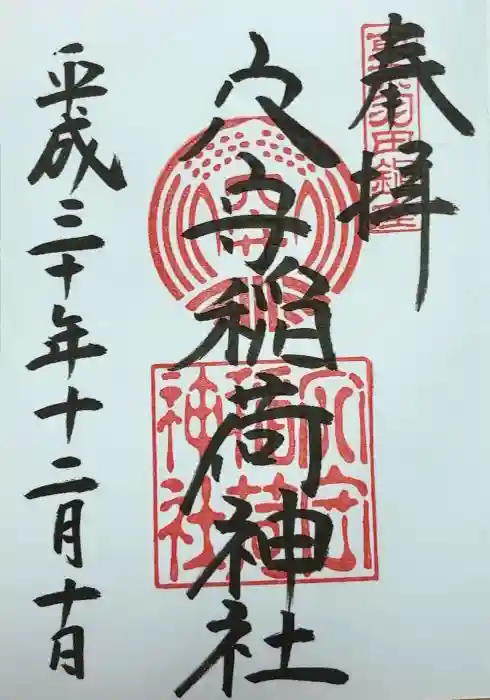 奉拝
穴守稲荷神社
平成三十年十二月十日
穴守
稲荷
神社